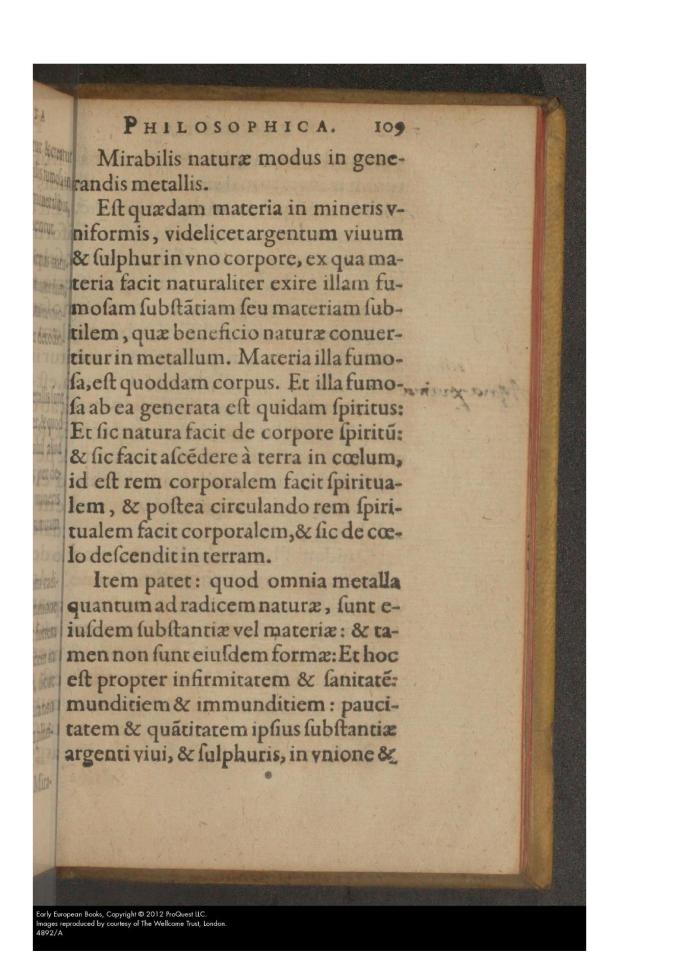 PHILOSOPHICA. 109
Mirabilis naturæ modus in gene-
randis metallis.
Eſt quædam materia in mineris v-
niformis, videlicet argentum viuum
& ſulphur in vno corpore, ex qua ma-
teria facit naturaliter exire illam fu-
moſam ſubſtãtiam ſeu materiam ſub-
tilem, quæ beneficio naturæ conuer-
titur in metallum. Materia illa fumo-
ſa, eſt quoddam corpus. Et illa fumo-
ſa ab ea generata eſt quidam ſpiritus:
Et ſic natura facit de corpore ſpiritũ:
& ſic facit aſcẽdere à terra in cœlum,
id eſt rem corporalem facit ſpiritua-
lem, & poſtea circulando rem ſpiri-
tualem facit corporalem, & ſic de cœ-
lo deſcendit in terram.
Item patet: quod omnia metalla
quantum ad radicem naturæ, ſunt e-
iuſdem ſubſtantiæ vel materiæ: & ta-
men non ſunt eiuſdem formæ: Et hoc
eſt propter infirmitatem & ſanitatẽ:
munditiem & immunditiem: pauci-
tatem & quãtitatem ipſius ſubſtantiæ
argenti viui, & ſulphuris, in vnione &
Early European Books, Copyright © 2012 ProQuest LLC.
Images reproduced by courtesy of The Wellcome Trust, London.
4892/A